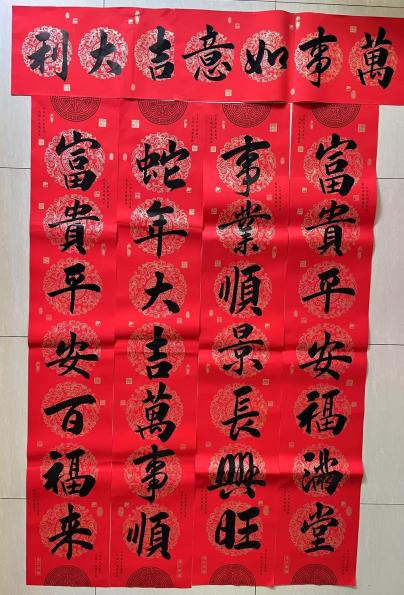 萬事如意吉大利
富貴平安福滿堂
事業順景長興旺
蛇年大吉萬事順
富貴平安百福来